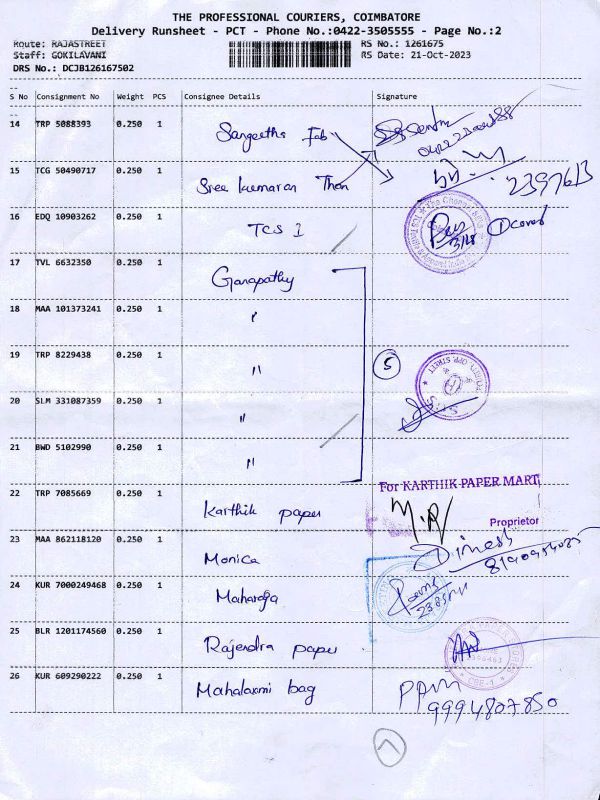 THE PROFESSIONAL COURIERS, COIMBATORE
Delivery Runsheet - PCT - Phone No.:0422-3505555 - Page No.:2
Route: RAJASTREET RS No.: 1261675
Staff: GOKILAVANI RS Date: 21-Oct-2023
DRS No.: DCJB126167502
S No Consignment No Weight PCS Consignee Details Signature
14 TRP 5088393 0.250 1 Sangeetha Fab
15 TCG 50490717 0.250 1 Sree kumaran Than 2397613
16 EDQ 10903262 0.250 1 TCS I
17 TVL 6632350 0.250 1 Ganapathy
18 MAA 101373241 0.250 1 "
19 TRP 8229438 0.250 1 " 5
20 SLM 331087359 0.250 1 "
21 BWD 5102990 0.250 1 "
For KARTHIK PAPER MART
22 TRP 7085669 0.250 1 Karthik paper
Proprietor
23 MAA 862118120 0.250 1 Monica Dinesh
24 KUR 7000249468 0.250 1 Maharaja
25 BLR 1201174560 0.250 1 Rajendra paper
26 KUR 609290222 0.250 1 Mahalaxmi bag
9994807850